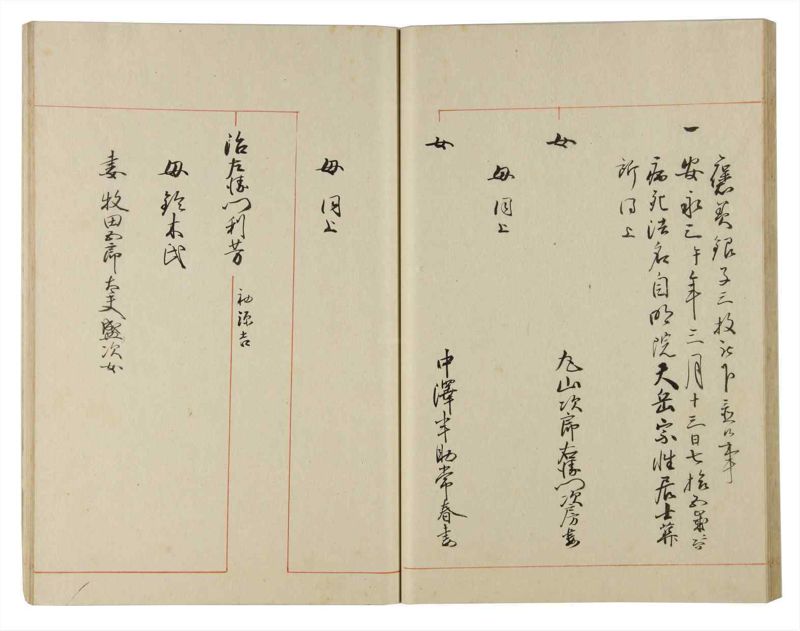 褒美銀子三枚被下置候事
一安永三午年三月十三日七拾五歳ニ而
病死法名自明院天岳宗性居士葬
所同上
女
丸山次郎右衛門次房妻
母同上
女
中澤半助常春妻
母同上
治左衛門利芳
初源吉
母鈴木氏
妻牧田五郎大夫盛次女